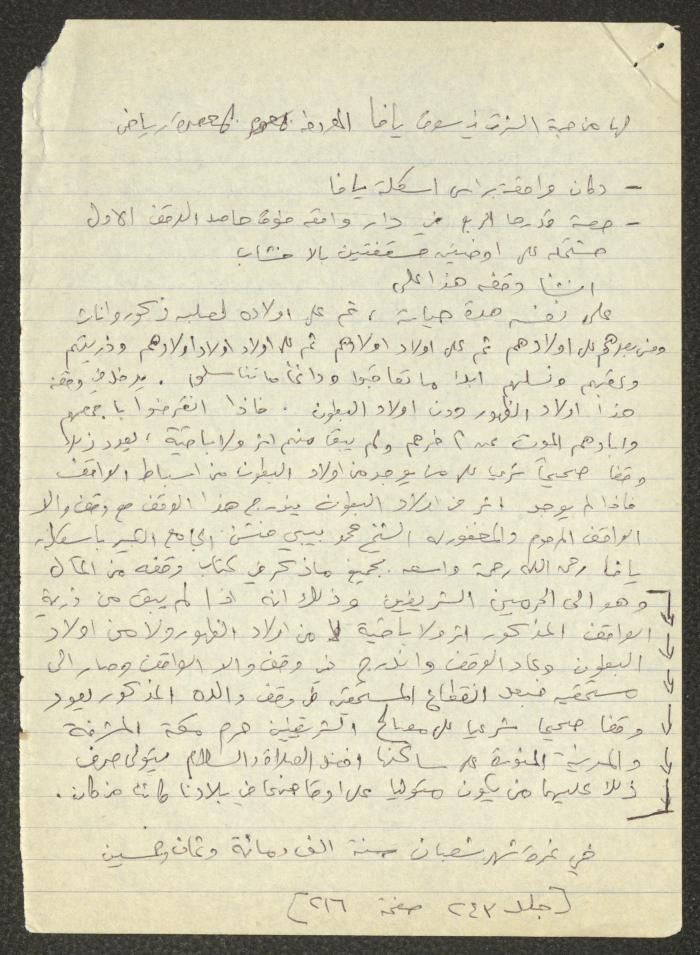 لها من جهة الشرق في سوق يافا المعروفة بعمرة رياض
– دكان واقعة براس اسكلة يافا
– حصة قدرها الربع في دار واقعة حامد الوقف الاول
مشتملة على اوضتين مسقفتين بالاخشاب
انشأ وقفه هذا على
على نفسه مدة حياته ، ثم على اولاده لصلبه ذكور واناث
ومن بعدهم على اولادهم ثم على اولاد اولادهم ثم على اولاد اولاد اولادهم وذريتهم
وعقبهم ونسلهم ابدا ما تعاقبوا ودائما ما تناسلوا . يدخل في وقفه
هذا اولاد الظهور دون اولاد البطون . فاذا انقرضوا باجمعهم
وابادهم الموت عن آخرهم ولم يبق منهم اثر ولا باقية ، يعود ذلك
وقفا صحيحاً شرعيا على من يوجد من اولاد البطون من اسباط الواقف
فاذا لم يوجد اثر من اولاد البطون يندرج هذا الوقف مع وقف والد
الواقف المرحوم والمغفور له الشيخ محمد بيبي منشئ الجامع الكبير باسكلة
يافا رحمه الله رحمة واسعة بجميع ما ذكر في كتاب وقفه من المآل
وهو الى الحرمين الشريفين وذلك انه اذا لم يبق من ذرية
الواقف المذكور اثر ولا باقية لا من اولاد الظهور ولا من اولاد
البطون وعاد الوقف واندرج في وقف والد الواقف وصار الى
مستحقيه فبعد انقطاع المستحقين في وقف والده المذكور يعود
وقفا صحيحا شرعيا على مصالح الشريفين حرم مكة المشرفة
والمدينة المنورة على ساكنها افضل الصلاة والسلام يتولى صرف
ذلك عليهما من يكون متوليا على اوقافهما في بلادنا كائنا من كان .
في غرة شهر شعبان سنة الف ومائة وثمان وخمسين
[جلد ٢٤٣ صفحة ٢١٦]